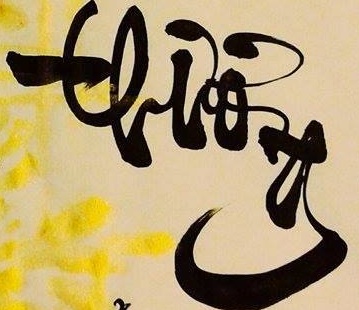 thương